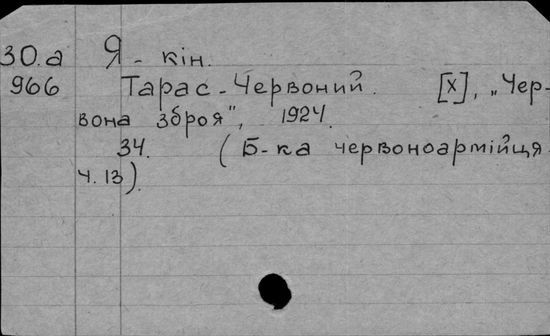 30.а Я - кін.
966 Тарас - Червоний. [х], „Чер-
вона зброя", 1924.
34. (Б-ка червоноармійця.
ч. 13).